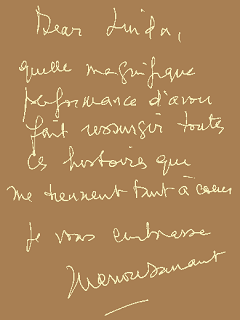 Dear Linda,
quelle magnifique
performance d'avoir
fait ressurgir toutes
ces histoires que
me tiennent tant à cœur
Je vous embrasse